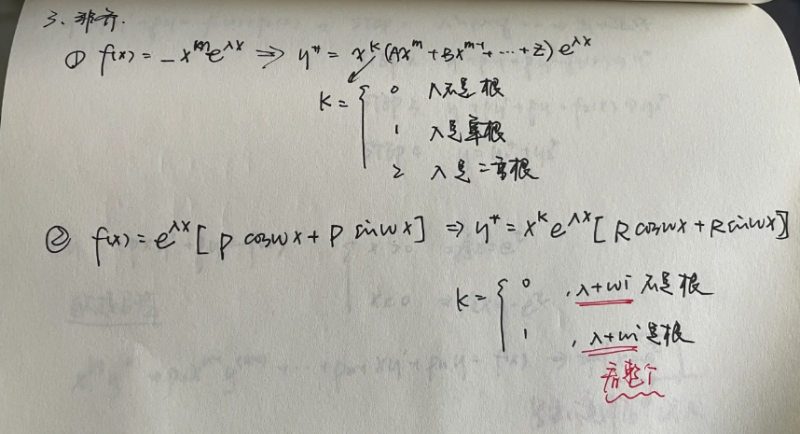 3. 非齐.
① f(x) = _ x^m e^{λx} ⇒ y* = x^k (Ax^m + Bx^{m-1} + ... + Z) e^{λx}
K = { 0 λ不是根
1 λ是单根
2 λ是二重根
② f(x) = e^{λx} [ P cosωx + P sinωx ] ⇒ y* = x^k e^{λx} [ R cosωx + R sinωx ]
K = { 0 , λ+ωi 不是根
1 , λ+ωi 是根
看整个